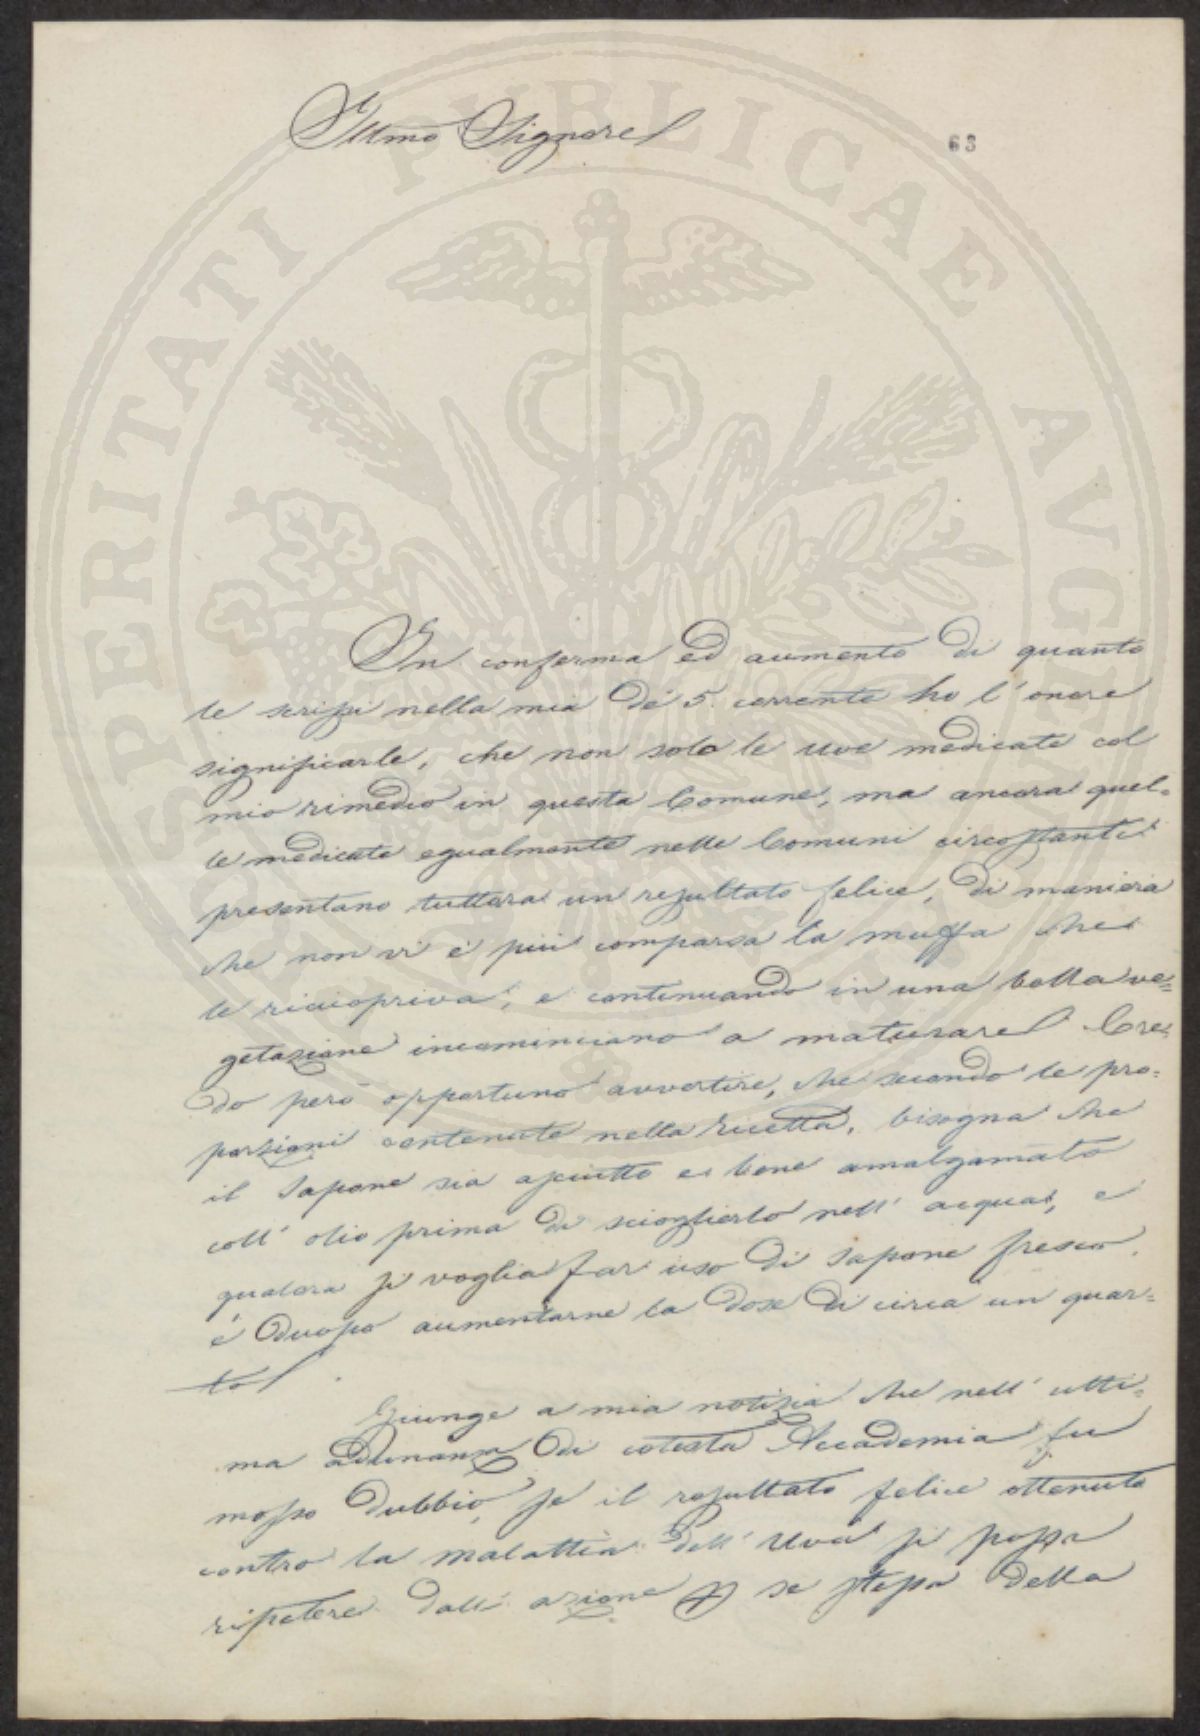 Illmo Signore
63
In conferma ed aumento di quanto
le scrissi nella mia de' 5. corrente ho l' onore
significarle, che non solo le uve medicate col
mio rimedio in questa Comune, ma ancora quel=
le medicate egualmente nelle Comuni circostanti
presentano tuttora un resultato felice, di maniera
che non vi è più comparsa la muffa che
le ricopriva, e continuando in una bella ve=
getazione incominciano a maturare. Cre=
do però opportuno avvertire, che secondo le pro=
porzioni contenute nella ricetta, bisogna che
il Sapone sia asciutto e bene amalgamato
coll' olio prima di scioglierlo nell' acqua, e
qualora si voglia far uso di Sapone fresco
è d'uopo aumentarne la dose di circa un quar=
to.
Giunge a mia notizia che nell' ulti=
ma adunanza di cotesta Accademia fu
mosso dubbio, se il resultato felice ottenuto
contro la malattia dell' Uva si possa
ripetere dall' azione p se stessa della
PROSPERITATI PUBLICAE AVGENDAE